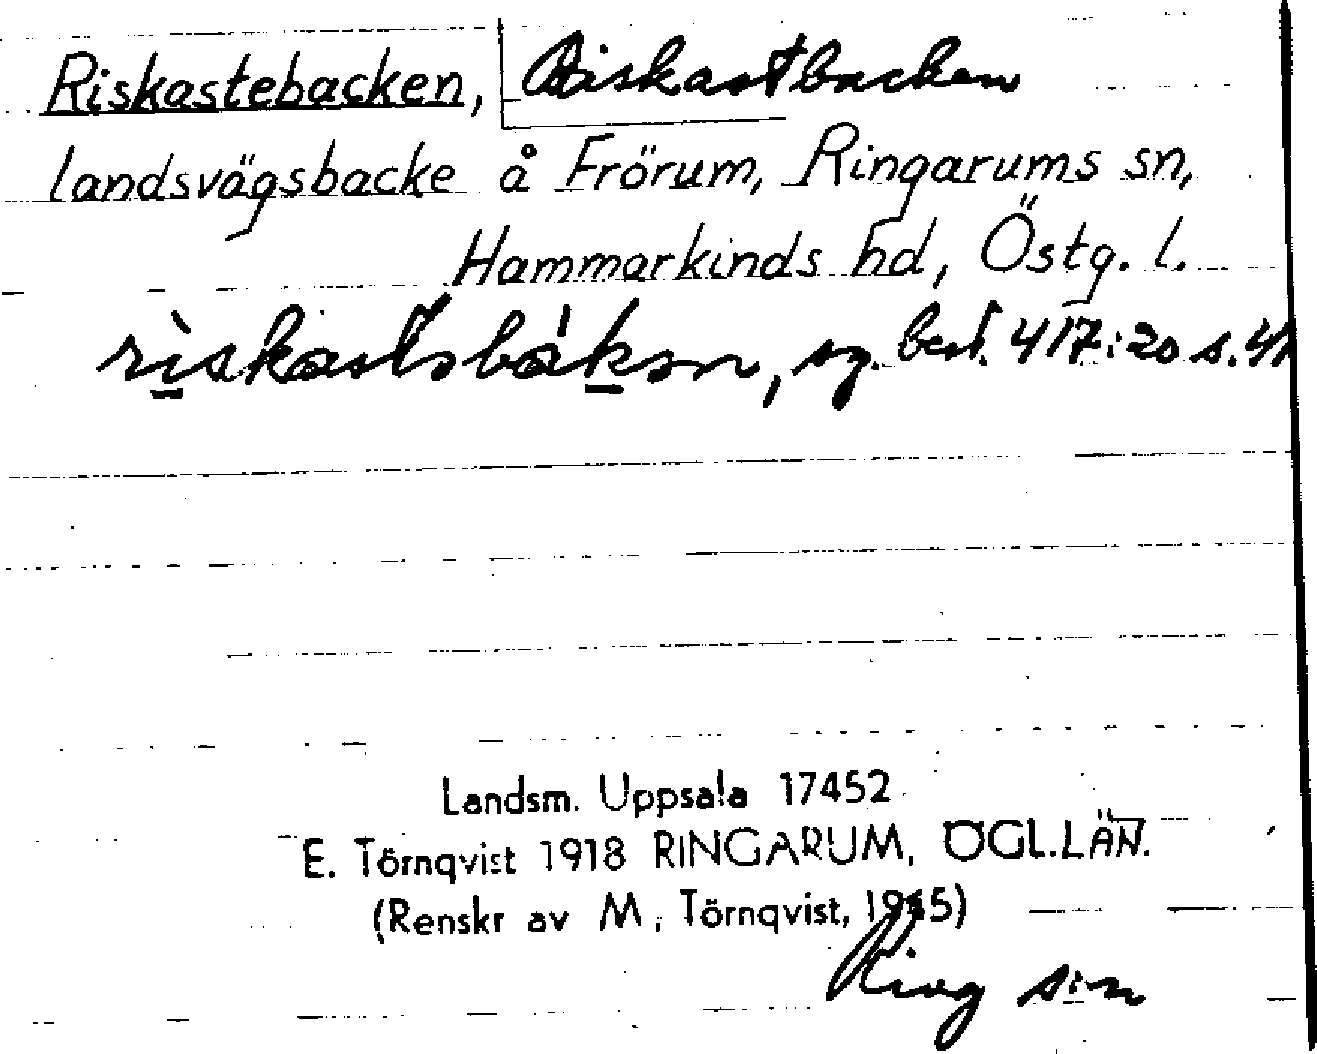 Riskastebacken, Riskastbacken
landsvägsbacke å Frörum, Ringarums sn,
Hammarkinds hd, Östg. l.
sg. best. 417:20 s.
Landsm. Uppsala 17452
E. Törnqvist 1918 RINGARUM, ÖGL.LÄN.
(Renskr av M. Törnqvist, 1945)
Ring s:n